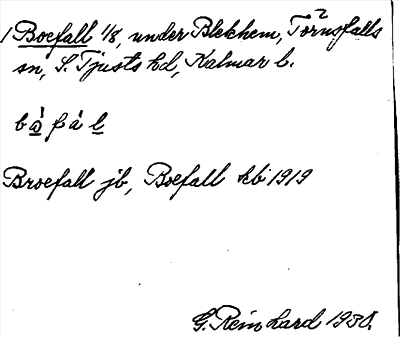 1 Boefall 1/8, under Blekhem, Törnsfalls
sn, S. Tjusts hd, Kalmar l.
Broefall jb, Boefall kb 1919
G. Reinhard 1930.